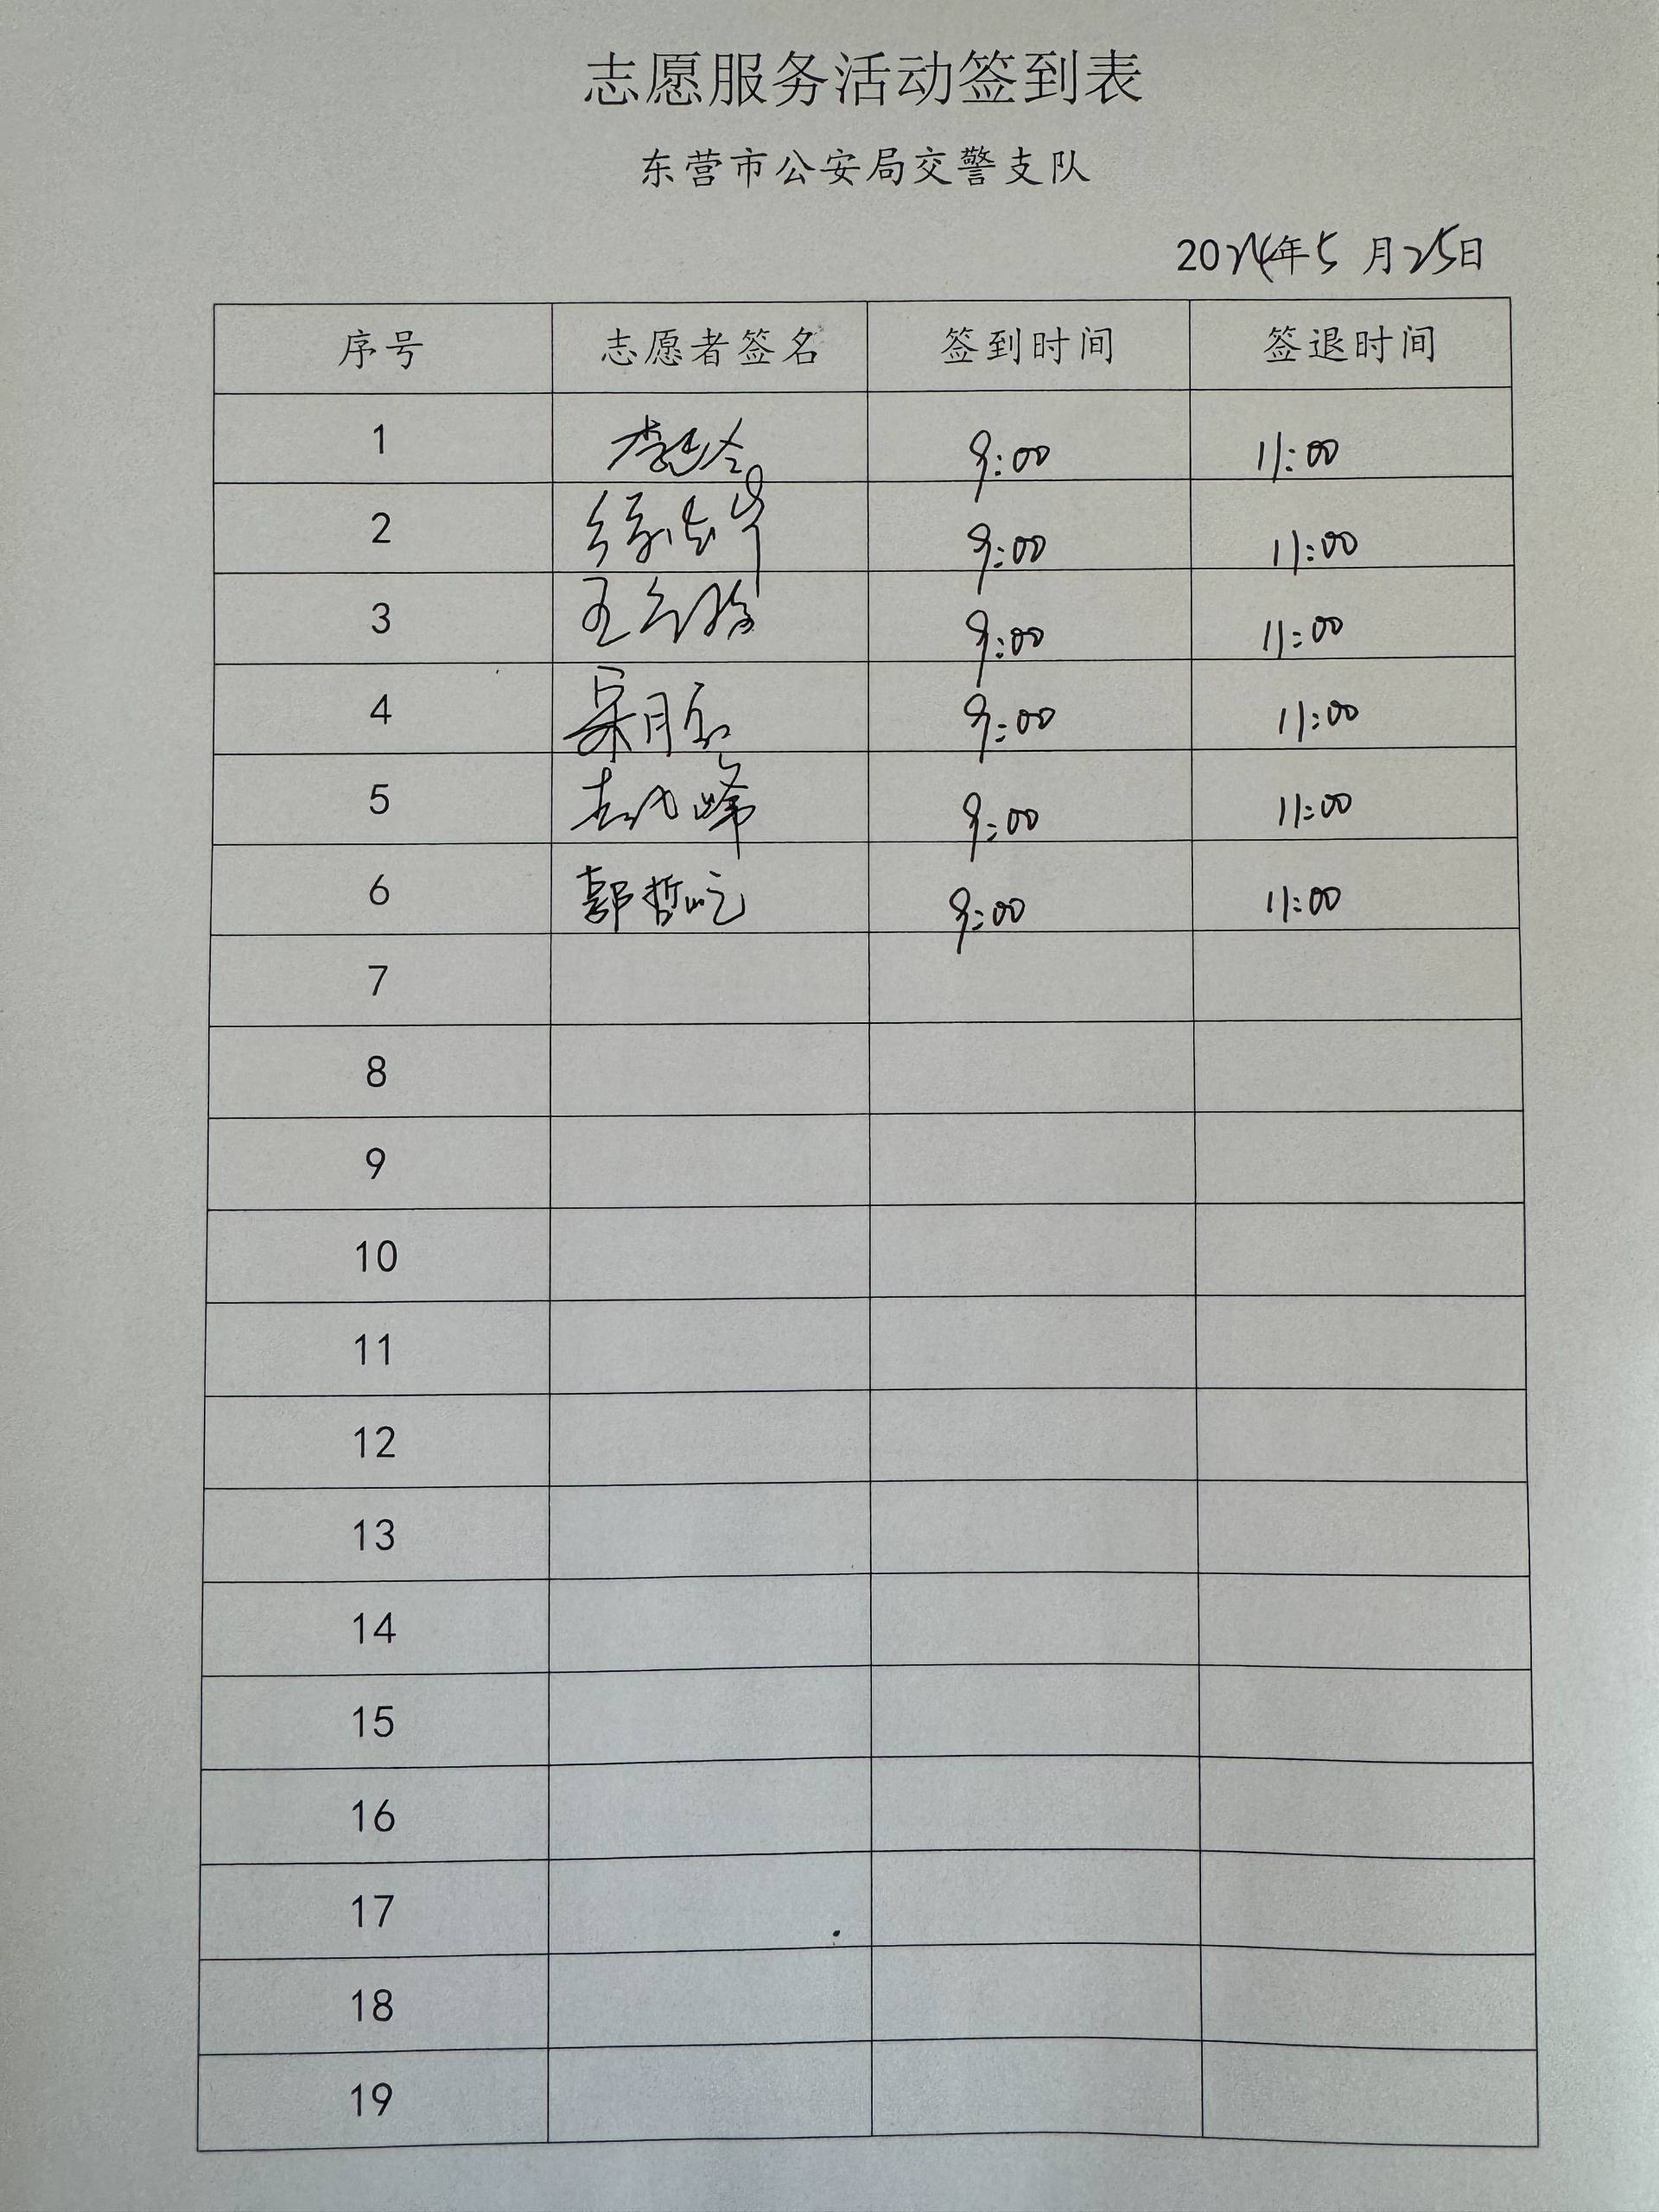 志愿服务活动签到表
东营市公安局交警支队
2024年5月25日
序号 志愿者签名 签到时间 签退时间
1 9:00 11:00
2 9:00 11:00
3 王 9:00 11:00
4 宋月 9:00 11:00
5 峰 9:00 11:00
6 郭哲屹 9:00 11:00
7
8
9
10
11
12
13
14
15
16
17
18
19